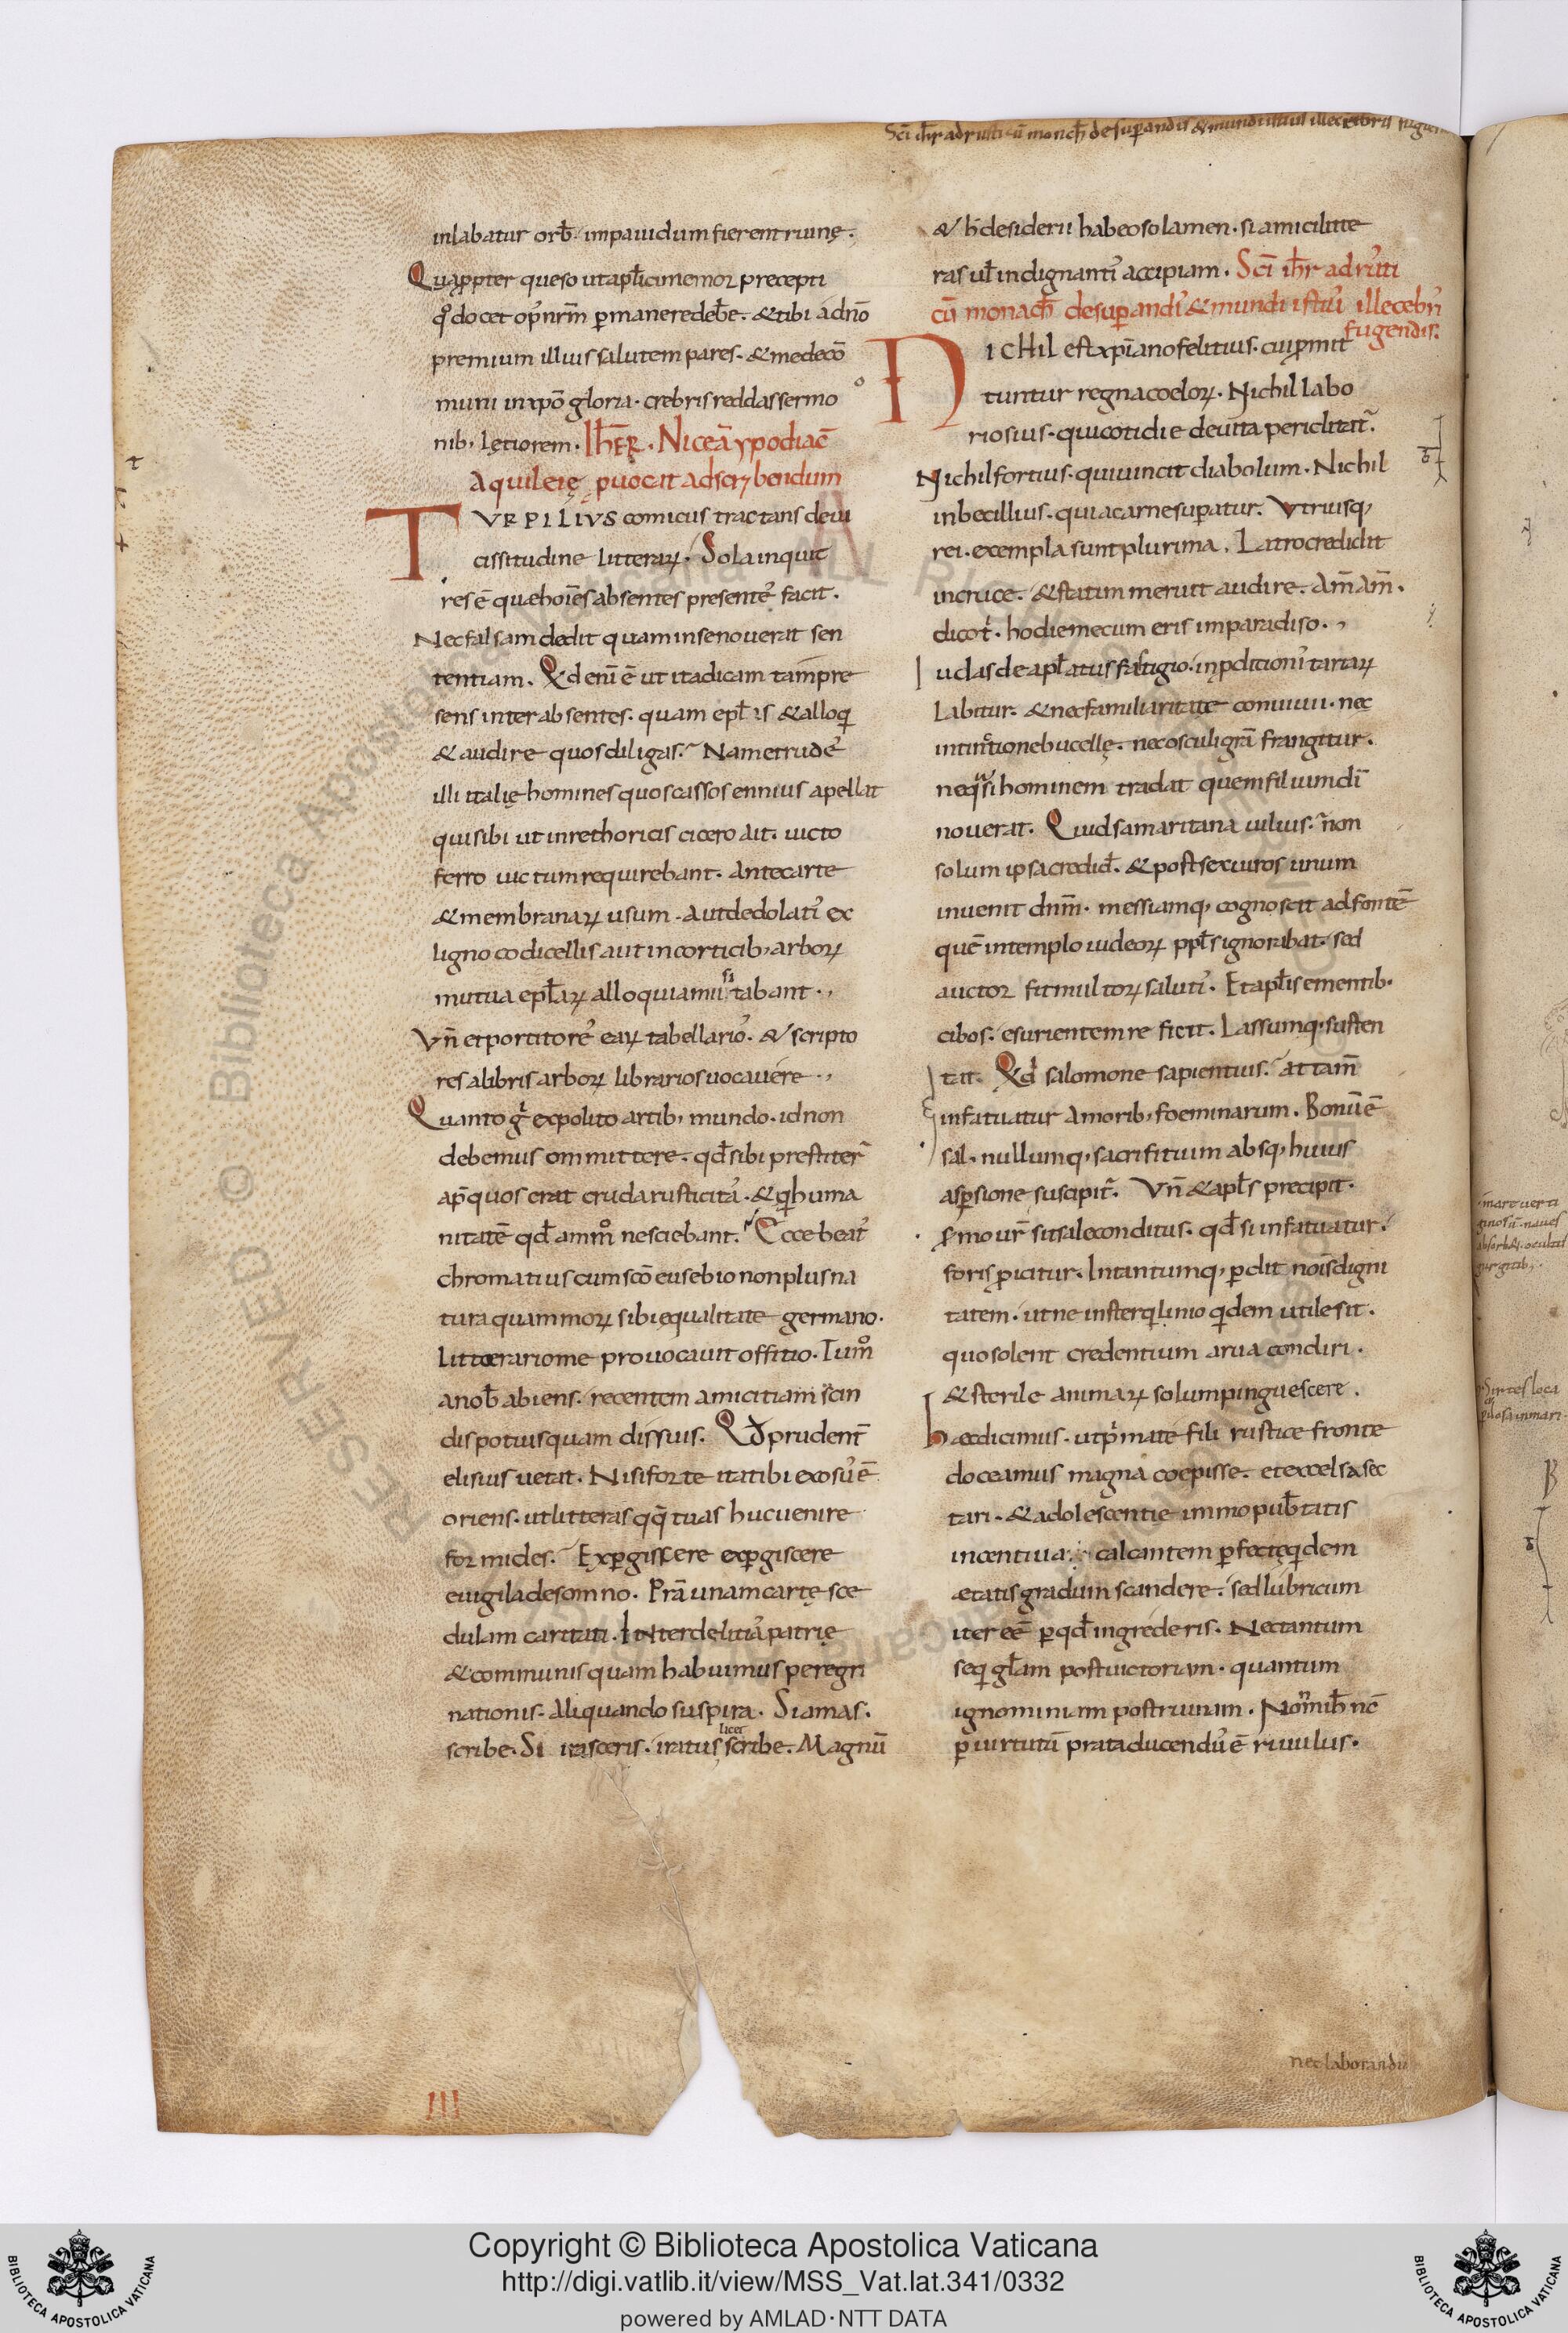 Sc̄i ih̄r ad rusticū monach̄ de suꝑandis & mundi istius illecebris fugien
inlabatur orb̄. impauidum fierent ruinę.
Quapp̱ter queso ut apl̄ici memor precepti
qᵒ docet opˀ nr̄m ꝑmanere deb̄e. & tibi a dn̄o
premium illius salutem pares. & me de cō
muni in xp̄o gloria. crebris reddas sermo
nib; lętiorem. Ih̄ER. Niceā ypodiac̄
Aquileię ꝓuocat ad scrybendum
TVRPILIVS comicus tractans de ui
cissitudine litterarꝝ. Sola inquit
res ē quæ hoīes absentes presenteˀ facit.
Nec falsam dedit quam in se nouerat sen
tentiam. Qd enī ē ut ita dicam tam pre
sens inter absentes. quam epl̄is & alloqi
& audire quos diligas. Nam et rudeˀ
illi italię homines quos cassos ennius apellat
qui sibi ut in rethoricis cicero ait. uicto
ferro uictum requirebant. Ante carte
& membranarꝝ usum. Aut dedolatiˀ ex
ligno codicellis aut in corticib; arborꝝ
mutua epl̄arꝝ alloquia mussitabant.
Vn̄ et portitoreˀ earꝝ tabellarioˀ. & scripto
res a libris arborꝝ librarios uocauere.
Quanto gͥ expolito artib; mundo. id non
debemus ommittere. qd̄ sibi prestiter̄
ap̄ quos erat cruda rusticitaˀ. & qi huma
nitatē qd̄ammͦ nesciebant. Ecce beatˀ
chromatius cum sc̄o eusebio non plus na
tura quam morꝝ sibi ęqualitate germano.
Litterario me prouocauit offitio. Tu mͦ
a nob̄ abiens. recentem amicitiam scin
dis potius quam dissuis. Qd̄ prudent̄
elisius uetat. Nisi forte ita tibi exosuˀ ē
oriens. ut litteras qq̄ tuas huc uenire
formides. Exꝑgiscere exꝑgiscere
euigila de somno. Prā unam cartę sce
dulam caritati. Inter delitiaˀ patrię
& communis quam habuimus peregri
nationis. Aliquando suspira. Si amas.
scribe. Si irasceris. iratus licet scribe. Magnū
& h̄ desiderii habeo solamen. si amici litte
ras ul̄ indignantiˀ accipiam. Sc̄i ih̄r ad ruˀti
cū monach̄ de suꝑandiˀ & mundi istiuˀ illecebriˀ
fugendis.
NICHIL est xp̄iano felitius. cui ꝓmit
tuntur regna coelorꝝ. Nichil labo
riosius. qui cotidie de uita periclitat᷑.
Nichil fortius. qui uincit diabolum. Nichil
inbecillius. qui a carne suꝑatur. Vtriusq;
rei. exempla sunt plurima. Latro credidit
in cruce. & statim meruit audire. Am̄ Am̄.
dico tͥ. hodie mecum eris in paradiso.
Iudas de apl̄atus fastigio. in ꝑditioniˀ tartarꝝ
labitur. & nec familiaritate conuiuii. nec
intinctione bucellę. nec osculi grā frangitur.
ne quasi hominem tradat quem filium dī
nouerat. Quid samaritana uilius. n̄ non
solum ipsa credid̄. & post sex uiros unum
inuenit dnm̄. messiamq; cognoscit ad fontē
quē in templo iudeorꝝ ppl̄s ignorabat. sed
auctor fit multorꝝ salutiˀ. Et apl̄is ementib.
cibos. esurientem reficit. Lassumq; susten
tat. Qd̄ salomone sapientius. at tam̄
infatuatur amorib; foeminarum. Bonū ē
sal. nullumq; sacrifitium absq; huius
asꝑsione suscipit᷑. Vn̄ & apl̄s precipit.
sermo ur̄ sit sale conditus. qd̄ si infatuatur.
foris ꝓicitur. Intantumq; ꝑdit nōis digni
tatem. ut ne in sterqilinio qidem utile sit.
quo solent credentium arua condiri.
& sterile animarꝝ solum pinguescere.
Haec dicimus. ut pͥma te fili rustice fronte
doceamus magna coepisse. et excelsa sec
tari. & adolescentie immo pub̄tatis
incentiua. calcantem ꝑfectę qidem
ætatis gradum scandere. sed lubricum
iter eē ꝑ qd̄ ingrederis. Nec tantum
seqi gl̄am post uictoriam. quantum
ignominiam post ruinam. Non mih̄ nc̄
ꝑ uirtutū prata ducenduˀ ē riuulus.
nec laborandū
III
mart uerti
gnosū. naues
absorb&. ocultis
gurgitib;
Sirtes loca
in mari
Copyright © Biblioteca Apostolica Vaticana
http://digi.vatlib.it/view/MSS_Vat.lat.341/0332
powered by AMLAD·NTT DATA
BIBLIOTECA APOSTOLICA VATICANA
BIBLIOTECA APOSTOLICA VATICANA